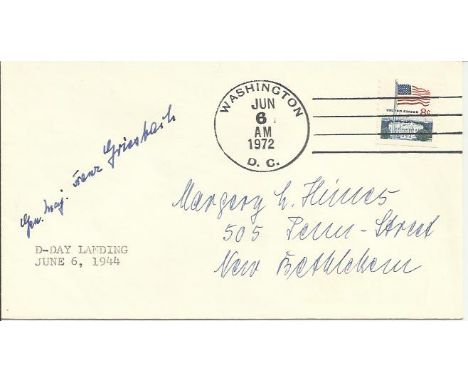 WASHINGTON
JUN
6
AM
1972
D. C.
8c
Gen. Maj. Franz Griesbach
D-DAY LANDING
JUNE 6, 1944
Margery L. Himes
505 Penn-Street
New Bethlehem